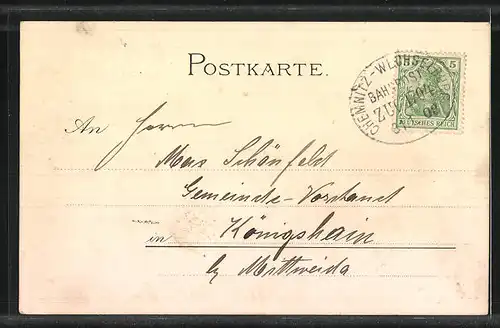 POSTKARTE.
CHEMNITZ-WECHSELB
BAHNPOST
ZUG
5
DEUTSCHES REICH
An Herrn
Max Schönfeldt
Gemeinde-Vorstand
in Königshain
by Mittweida